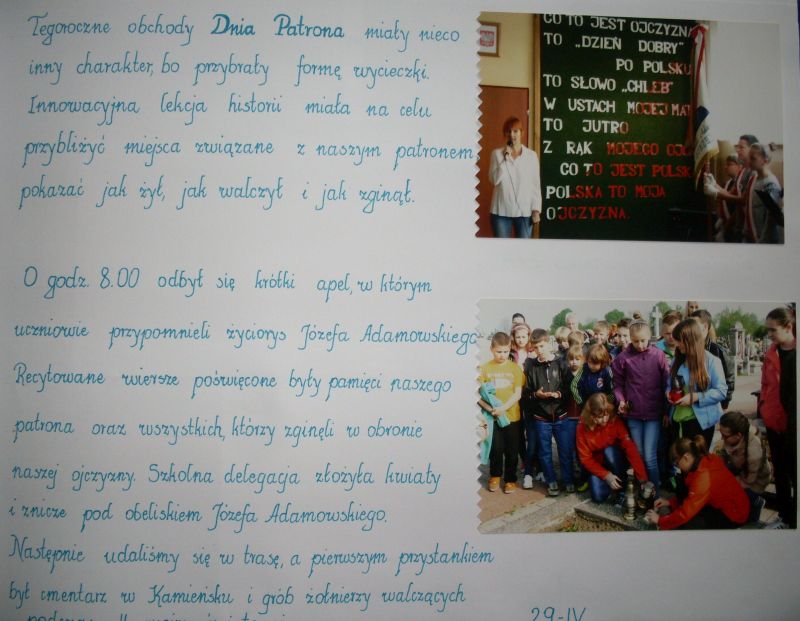 Tegoroczne obchody Dnia Patrona miały nieco
inny charakter, bo przybrały formę wycieczki.
Innowacyjna lekcja historii miała na celu
przybliżyć miejsca związane z naszym patronem
pokazać jak żył, jak walczył i jak zginął.
O godz. 8.00 odbył się krótki apel, w którym
uczniowie przypomnieli życiorys Józefa Adamowskiego
Recytowane wiersze poświęcone były pamięci naszego
patrona oraz wszystkich, którzy zginęli w obronie
naszej ojczyzny. Szkolna delegacja złożyła kwiaty
i znicze pod obeliskiem Józefa Adamowskiego.
Następnie udaliśmy się w trasę, a pierwszym przystankiem
był cmentarz w Kamieńsku i grób żołnierzy walczących
CO TO JEST OJCZYZNA
TO „DZIEŃ DOBRY"
PO POLSKU
TO SŁOWO „CHLEB"
W USTACH MOJEJ MAT
TO JUTRO
Z RĄK MOJEGO OJC
CO TO JEST POLSK
POLSKA TO MOJA
OJCZYZNA.
29-IV